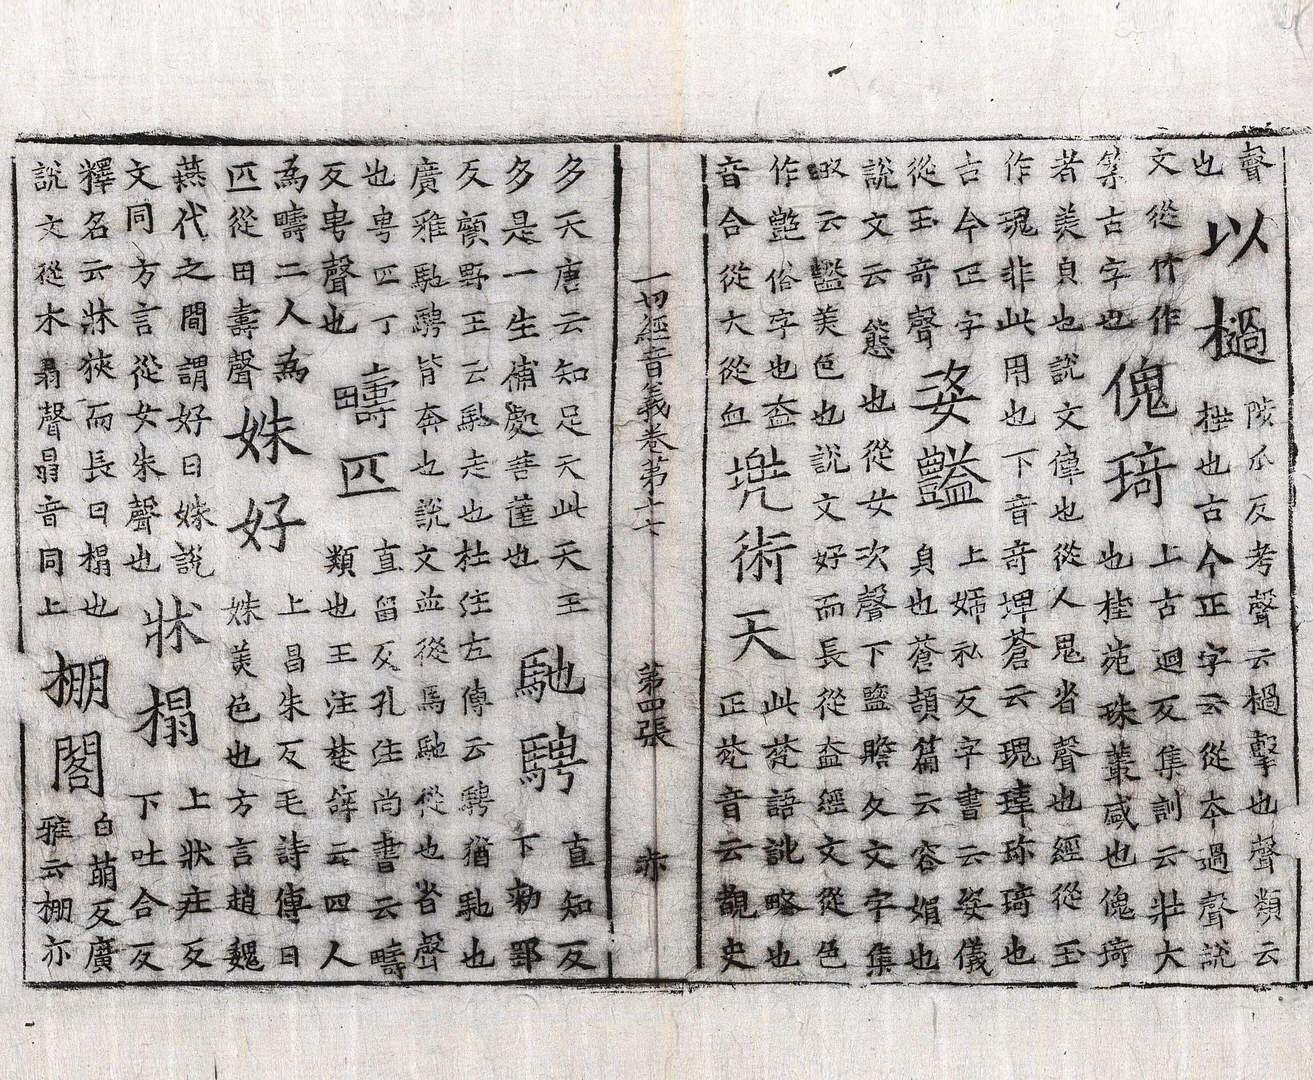 聲
也
以檛
陟瓜反考聲云檛擊也聲類云
棰也古今正字云從本過聲說
文從竹作
築古字也
傀琦
上古迴反集訓云壯大
也桂苑珠叢盛也傀琦
者美皃也說文偉也從人鬼省聲也經從玉
作瑰非此用也下音奇埤蒼云瑰瑋珎琦也
古今正字
從玉奇聲
姿豔
上姉私反字書云姿儀
皃也蒼頡篇云容媚也
說文云態也從女次聲下鹽贍反文字集
略云豔美色也說文好而長從盇經文從色
作艶俗字也盇
音合從大從血
兠術天
此梵語訛略也
正梵音云覩史
一切經音義卷第十七 第四張 亦
多天唐云知足天此天王
多是一生補處菩薩也
馳騁
直知反
下勑郢
反顧野王云馳走也杜注左傳云騁猶馳也
廣雅馳騁皆奔也說文並從馬馳從也省聲
也甹匹丁
反甹聲也
疇匹
直留反孔注尚書云疇
類也王注楚辭云四人
為疇二人為
匹從田壽聲
姝好
上昌朱反毛詩傳曰
姝美色也方言趙魏
燕代之間謂好曰姝說
文同方言從女朱聲也
牀榻
上狀莊反
下吐合反
釋名云牀狹而長曰榻也
說文從木𦐇聲𦐇音同上
棚閣
白萌反廣
雅云棚亦